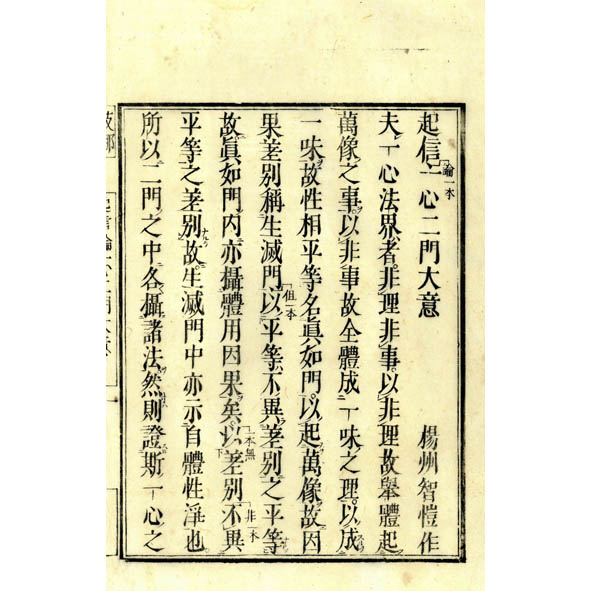 起信一心二門大意　楊州智愷作
論一本
夫一心法界者非理非事以非理故舉體起
萬像之事以非事故全體成一味之理以成
一味故性相平等名眞如門以起萬像故因
果差別稱生滅門以平等不異差別之平等
但一本
故眞如門內亦攝體用因果矣以差別不異
一本無
非一本
平等之差別故生滅門中亦示自體性淨也
所以二門之中各攝諸法然則證斯一心之